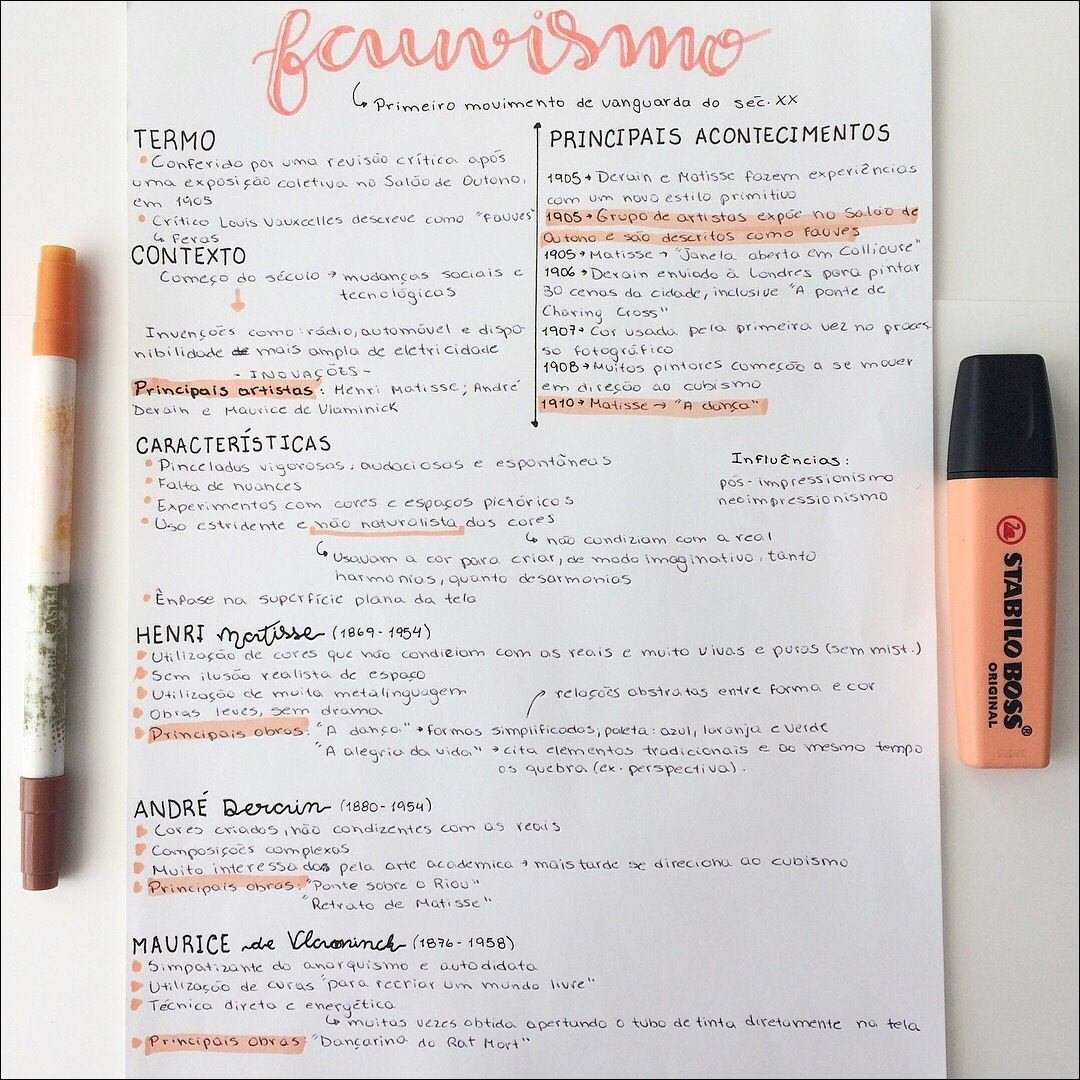 fauvismo
↳ Primeiro movimento de vanguarda do séc. XX
TERMO
• Conferido por uma revisão crítica após
uma exposição coletiva no Salão de Outono,
em 1905
• Crítico Louis Vauxcelles descreve como "fauves"
↳ Feras
CONTEXTO
Começo do século → mudanças sociais e
tecnológicas
↓
Invenções como: rádio, automóvel e dispo-
nibilidade de mais ampla de eletricidade
- INOVAÇÕES -
Principais artistas: Henri Matisse; André
Derain e Maurice de Vlaminick
PRINCIPAIS ACONTECIMENTOS
1905 → Derain e Matisse fazem experiências
com um novo estilo primitivo
1905 → Grupo de artistas expõe no Salão de
Outono e são descritos como Fauves
1905 → Matisse → "Janela aberta em Collioure"
1906 → Derain enviado à Londres para pintar
30 cenas da cidade, inclusive "A ponte de
Charing Cross"
1907 → Cor usada pela primeira vez no proces-
so fotográfico
1908 → Muitos pintores começão a se mover
em direção ao cubismo
1910 → Matisse → "A dança"
CARACTERÍSTICAS
• Pinceladas vigorosas, audaciosas e espontâneas
• Falta de nuances
• Experimentos com cores e espaços pictóricos
• Uso estridente e não naturalista das cores
↳ não condiziam com a real
↳ Usavam a cor para criar, de modo imaginativo, tanto
harmonias, quanto desarmonias
• Ênfase na superfície plana da tela
Influências:
pós-impressionismo
neoimpressionismo
HENRI Matisse (1869-1954)
Utilização de cores que não condiziam com as reais e muito vivas e puras (sem mist.)
Sem ilusão realista de espaço
Utilização de muita metalinguagem
Obras leves, sem drama
relações abstratas entre forma e cor
Principais obras: "A dança" → formas simplificadas, paleta: azul, laranja e verde
"A alegria da vida" → cita elementos tradicionais e ao mesmo tempo
os quebra (ex. perspectiva).
ANDRÉ Derain (1880-1954)
Cores criadas, não condizentes com as reais
Composições complexas
Muito interessados pela arte academica → mais tarde se direciona ao cubismo
Principais obras: "Ponte sobre o Riou"
"Retrato de Matisse"
MAURICE de Vlaminck (1876-1958)
Simpatizante do anarquismo e autodidata
Utilização de curas "para recriar um mundo livre"
Técnica direta e energética
↳ muitas vezes obtida apertando o tubo de tinta diretamente na tela
Principais obras: "Dançarina do Rat Mort"
STABILO BOSS®
ORIGINAL